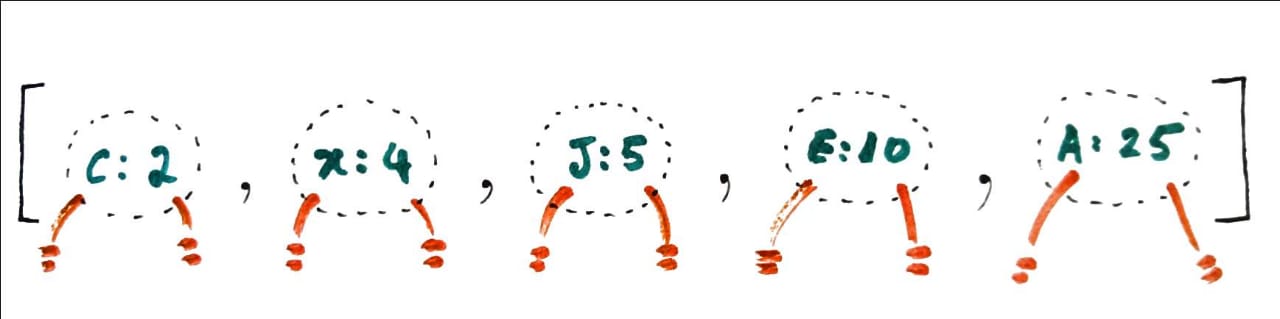 [ C: 2 , x: 4 , J: 5 , E: 10 , A: 25 ]